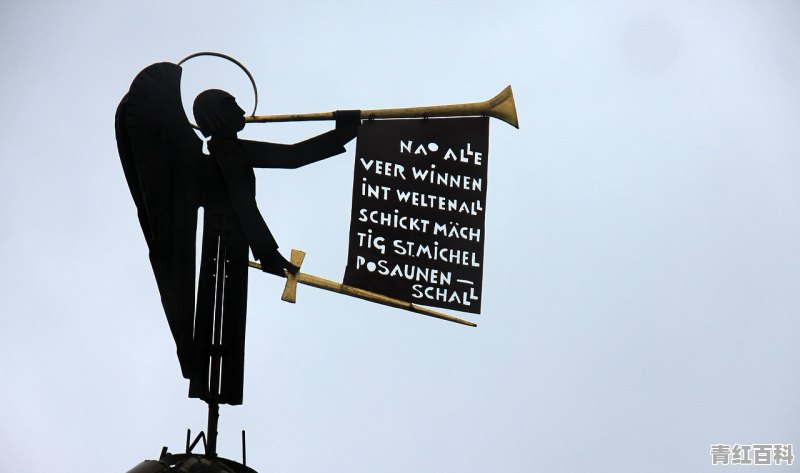 NAO ALLE
VEER WINNEN
INT WELTENALL
SCHICKT MÄCH
TIG ST.MICHEL
POSAUNEN—
SCHALL
W
青红百科